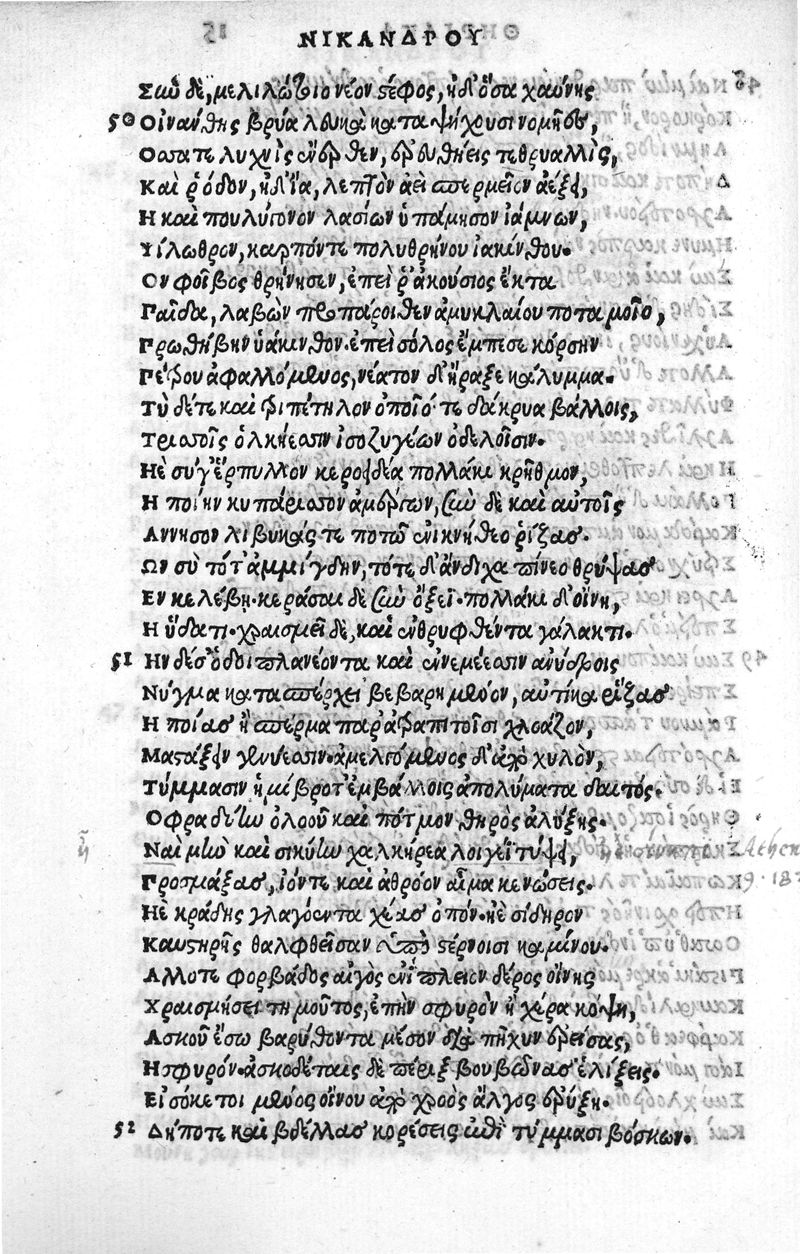 ΝΙΚΑΝΔΡΟΥ
Σὺν δὲ, μελιλώτοιο νέον στέφος, ἠδ' ὅσα χαύνης
50 Οἰνάνθης βρύα λευκὰ καταψήχουσι νομῆες,
Ὅσσα τε λυχνὶς ἔνερθεν, ἐρευθήεις τε θρυαλλὶς,
Καὶ ῥόδον, ἠδ' ἴα, λεπτὸν ἀεὶ σπερμεῖον ἀέξει,
Η καὶ πουλύγονον λασίων ὑπάμησον ἰάμνων,
Ψίλωθρον, καρπόν τε πολυθρήνου ἰακίνθου.
Ον φοῖβος θρήνησεν, ἐπεὶ ῥ' ἀκούσιος ἔκτα
Παῖδα, λαβὼν προπάροιθεν ἀμυκλαίου ποταμοῖο,
Πρωθήβην ὑάκινθον. ἐπεὶ σόλος ἔμπεσε κόρσῃ
Πέτρου ἀφαλλόμενος, νέατον δ' ἤραξε κάλυμμα.
Σὺ δέ τε καὶ τριπέτηλον ὀποῖό τε δάκρυα βάλλοις,
Τρισσοῖς ὁλκήεσσιν ἰσοζυγέων ὀδελοῖσιν.
Ηὲ σύ γ' ἕρπυλλον κεροειδέα πολλάκι κρῆθμον,
Η ποίην κυπάρισσον ἀμέργεων, σὺν δὲ καὶ αὐτοῖς
Αννησον λιβυκάς τε ποτῷ ἐνικνήθεο ῥίζας.
Ων σὺ τότ' ἀμμίγδην, τότε δ' ἄνδιχα πίνεο θρύψας
Εν κελέβῃ. κεράσαι δὲ σὺν ὄξεϊ. πολλάκι δ' οἴνῃ,
Η ὕδατι. χραισμεῖ δὲ, καὶ ἐνθρυφθέντα γάλακτι.
51 Ην δέ σ' ὁδοιπλανέοντα καὶ ἐν νεμέεσσιν ἀνύδροις
Νύγμα κατασπέρχῃ βεβαρημένον, αὐτίκα ῥίζας
Η ποίας ἢ σπέρμα παρ' ἀτραπιτοῖσι χλοάζον,
Μαστάζειν γενύεσσιν. ἀμελγόμενος δ' ἀπὸ χυλὸν,
Τύμμασιν ἡμίβροτ' ἐμβάλλοις ἀπολύματα δαιτός.
Οφρα δύην ὀλοοῦ καὶ πότμον θηρὸς ἀλύξῃς.
Ναὶ μὴν καὶ σικύην χαλκήρεα λοιγέϊ τύψει,
Προσμάξας, ἰόν τε καὶ ἀθρόον αἷμα κενώσεις.
Ηὲ κράδης γλαγόεντα χέας ὀπόν. ἠὲ σίδηρον
Καυστηρῆς θαλφθεῖσαν ὑπὸ στέρνοισι καμίνου.
Αλλοτε φορβάδος αἰγὸς ἐνίπλειον δέρος οἴνης
Χραισμήσει τημοῦτος, ἐπὴν σφυρὸν ἢ χέρα κόψῃ,
Ασκοῦ ἔσω βαρύθοντα μέσον διὰ πῆχυν ἐρείσας,
Η σφυρόν. ἀσκοδέταις δὲ πέριξ βουβῶνας ἑλίξεις.
Εἰσόκε τοι μένος οἴνου ἀπὸ χροὸς ἄλγος ἐρύξῃ.
52 Δήποτε καὶ βδέλλας κορέσεις ἐπὶ τύμμασι βόσκων.